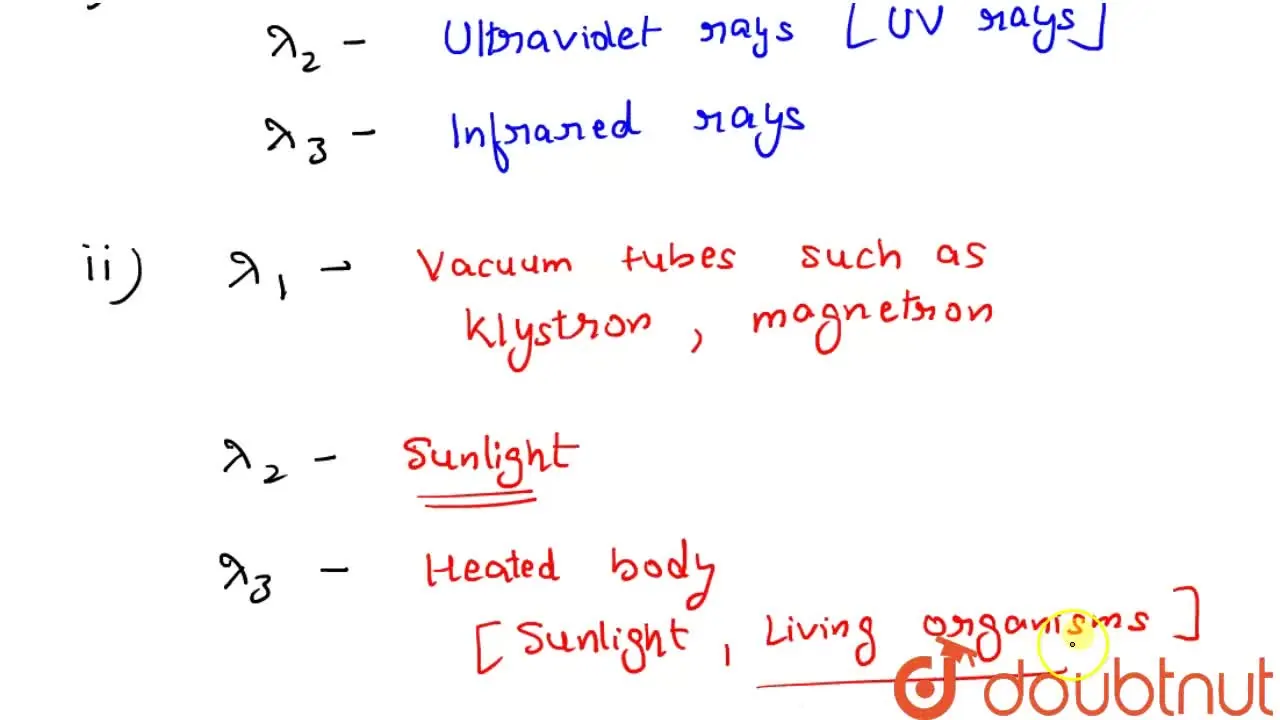 λ2 - Ultraviolet rays [UV rays]
λ3 - Infrared rays
ii) λ1 - Vacuum tubes such as
klystron, magnetron
λ2 - Sunlight
λ3 - Heated body
[Sunlight, Living organisms]
doubtnut